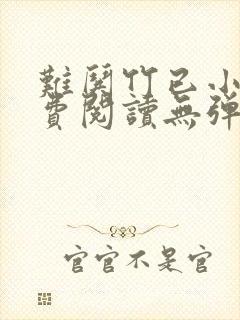 難鬨竹已小
費閱讀無彈
官官不是官